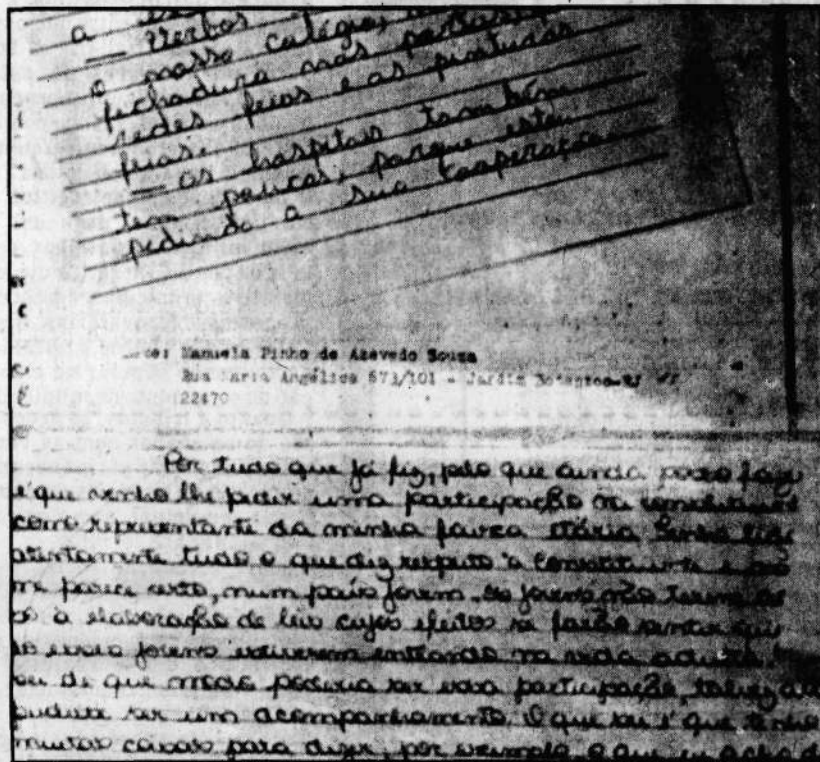 a
— Verbas
o nosso colégio,
fechadura nas portas,
redes feias e as pinturas
feias.
— os hospitais também
tem poucas, porque estão
pedindo a sua cooperação
Manuela Pinho de Azevedo Souza
Rua Maria Angélica 671/101 - Jardim Botanico-RJ
22470
Por tudo que já fiz, pelo que ainda posso fazer
é que venho lhe pedir uma participação na constituinte
como representante da minha faixa etária. Tenho lido
atentamente tudo o que diz respeito à Constituinte e não
me parece certo, num país jovem, os jovens não terem
à elaboração de leis cujos efeitos se farão sentir
jovens estiverem entrando na vida adulta.
sei de que modo poderia ser essa participação, talvez até
pudesse ser um acompanhamento. O que sei é que tenho
muitas coisas para dizer, por exemplo, o que eu acho d